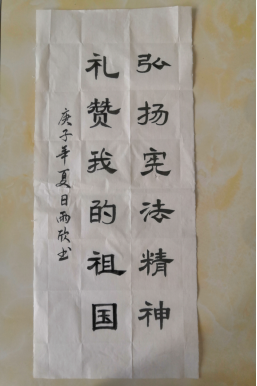 弘扬宪法精神
礼赞我的祖国
庚子年夏日雨欣书